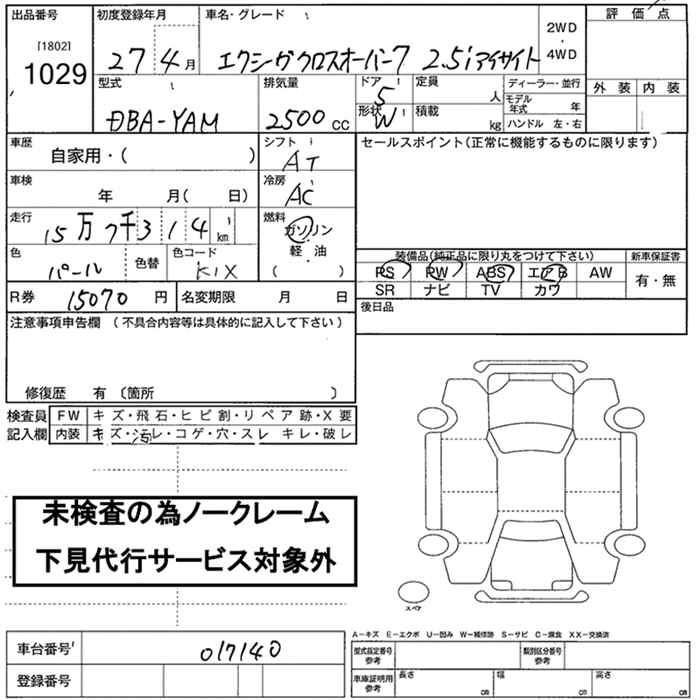 出品番号 初度登録年月 車名・グレード 2WD ・ 4WD 評価点
[1802]
1029 27 4月 エクシーガクロスオーバー7 2.5iアイサイト
型式 排気量 ドア 定員 ディーラー・並行 外装 内装
DBA-YAM 2500 CC 5 人 モデル年式 年
形状 W 積載 kg ハンドル 左・右
車歴 自家用・( ) シフト AT セールスポイント(正常に機能するものに限ります)
車検 年 月( 日) 冷房 AC
走行 15万7千314 km 燃料 ガソリン・軽油・( )
色 パール 色替 色コード K1X 装備品(純正品に限り丸をつけて下さい) 新車保証書
PS PW ABS エアB AW 有・無
R券 15070 円 名変期限 月 日 SR ナビ TV カワ
注意事項申告欄 (不具合内容等は具体的に記入して下さい) 後日品
修復歴 有 〔箇所 〕
検査員 FW キズ・飛石・ヒビ割・リペア跡・X要
記入欄 内装 キズ・汚レ・コゲ・穴・スレ キレ・破レ
未検査の為ノークレーム
下見代行サービス対象外
スペア
A-キズ E-エクボ U-凹み W-補修跡 S-サビ C-腐食 XX-交換済
車台番号 017140 型式指定番号 参考 類別区分番号 参考
登録番号 車庫証明用 参考 長さ cm 幅 cm 高さ cm